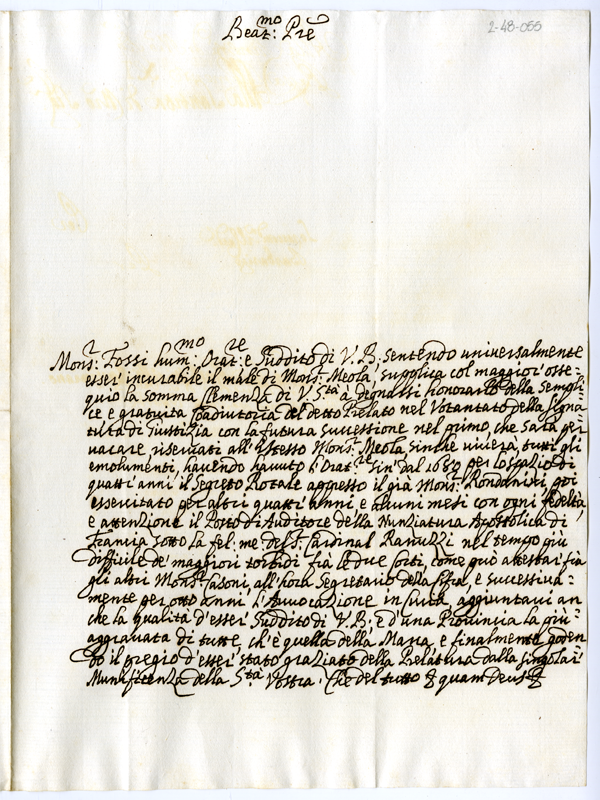 2-48-055
Beat:mo Pre
Monsr: Fossi hum:mo Orat:re e Suddito di V. B. sentendo universalmente
esser incurabile il male di Monsr: Meola, supplica col maggior osse=
quio la somma Clemenza di V. Sta à degnarsi honorarlo della sempli=
ce e gratuita Coadiutoria del detto Prelato nel Votantato della Signa=
tura di Giustizia con la futura successione nel primo, che sarà per
vacare, riservati all'istesso Monsr: Meola, sinche viverà, tutti gli
emolumenti, havendo havuto l'Orat:re sin' dal 1689 per lo spazio di
quattr'anni il Segreto Rotale appresso il già Monsr: Rondanini, poi
essercitato per altri quattr'anni, e alcuni mesi con ogni fedeltà,
e attenzione il Posto di Auditore della Nunziatura Apostolica di
Francia sotto la fel: me: del S. Cardinal Ranuzzi nel tempo più
difficile de' maggiori torbidi frà le due Corti, come può attestar frà
gli altri Monsr: Casoni, all'hora Segretario della Cifra, e successiva=
mente per otto anni l'Avvocazione in Curia, aggiuntavi an
che la qualità d'esser Suddito di V. B. e d'una Provincia la più
aggravata di tutte, ch'è quella della Marca, e finalmente goden
do il pregio d'esser stato graziato della Prelatura dalla singolar
Munificenza della Sta: Vostra. Che del tutto &c quam Deus &c